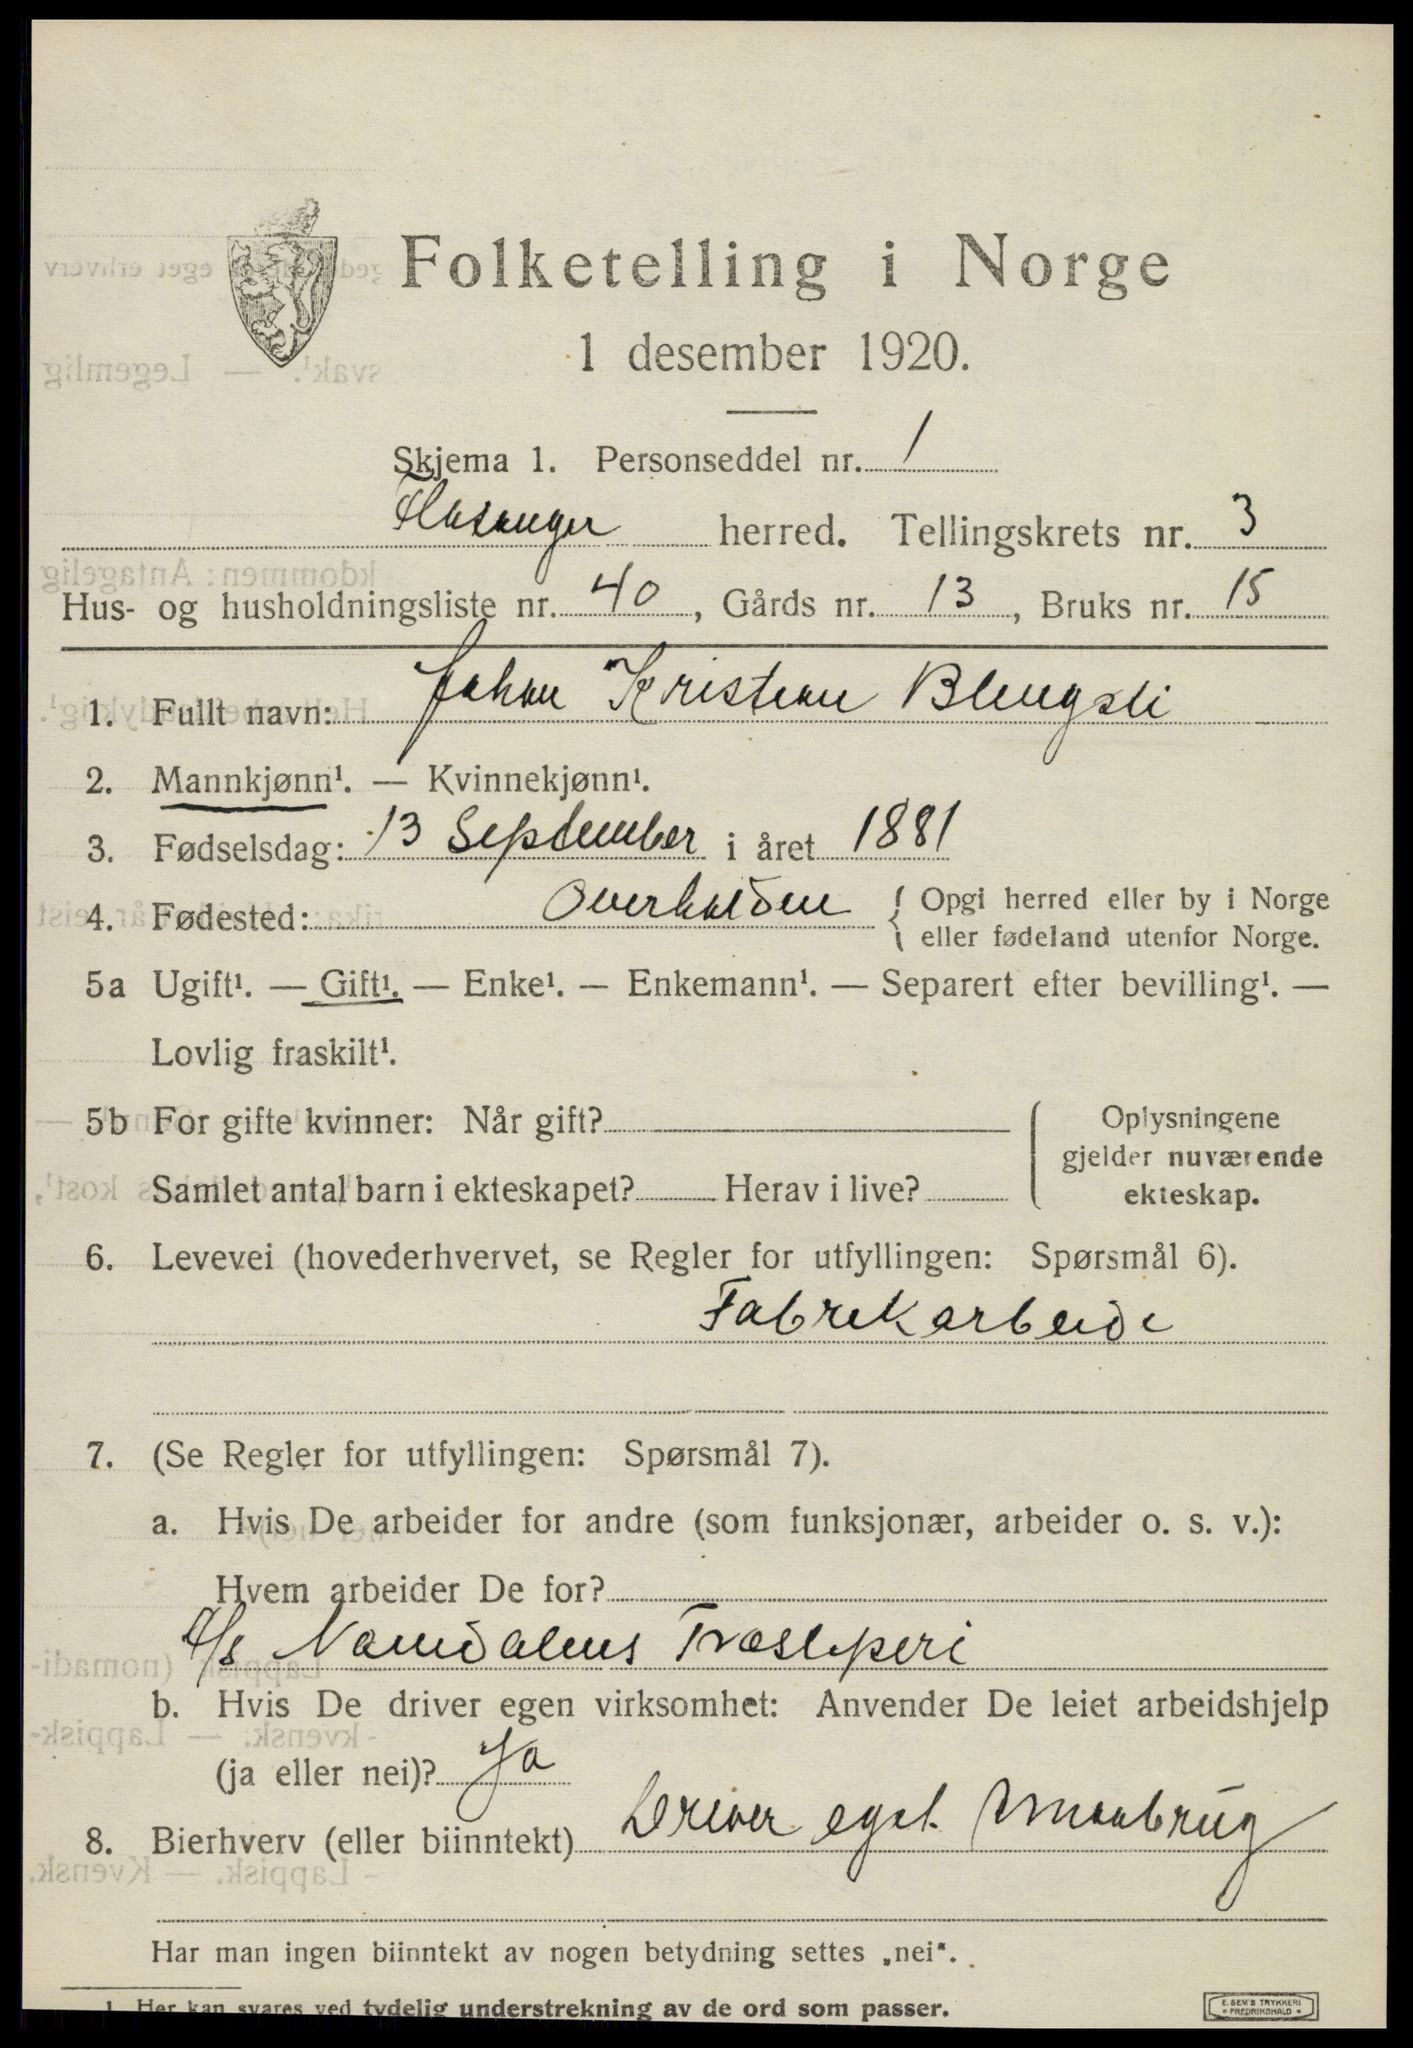 Folketelling i Norge
1 desember 1920.
Skjema 1. Personseddel nr. 1
Klasanger herred. Tellingskrets nr. 3
Hus- og husholdningsliste nr. 40, Gårds nr. 13, Bruks nr. 15
1. Fullt navn: Johan Kristian Blengsli
2. Mannkjønn¹. — Kvinnekjønn¹.
3. Fødselsdag: 13 September i året 1881
4. Fødested: Overhalden { Opgi herred eller by i Norge
eller fødeland utenfor Norge.
5a Ugift¹. — Gift¹. — Enke¹. — Enkemann¹. — Separert efter bevilling¹. —
Lovlig fraskilt¹.
5b For gifte kvinner: Når gift?
Samlet antal barn i ekteskapet? Herav i live?
Oplysningene
gjelder nuværende
ekteskap.
6. Levevei (hovederhvervet, se Regler for utfyllingen: Spørsmål 6).
Fabrikarbeide
7. (Se Regler for utfyllingen: Spørsmål 7).
a. Hvis De arbeider for andre (som funksjonær, arbeider o. s. v.):
Hvem arbeider De for?
A/S Namdalens Træsliperi
b. Hvis De driver egen virksomhet: Anvender De leiet arbeidshjelp
(ja eller nei)? Ja
8. Bierhverv (eller biinntekt) Driver eget Smaabrug
Har man ingen biinntekt av nogen betydning settes „nei".
1. Her kan svares ved tydelig understrekning av de ord som passer.
E. SEM'S TRYKKERI
FREDRIKSHALD